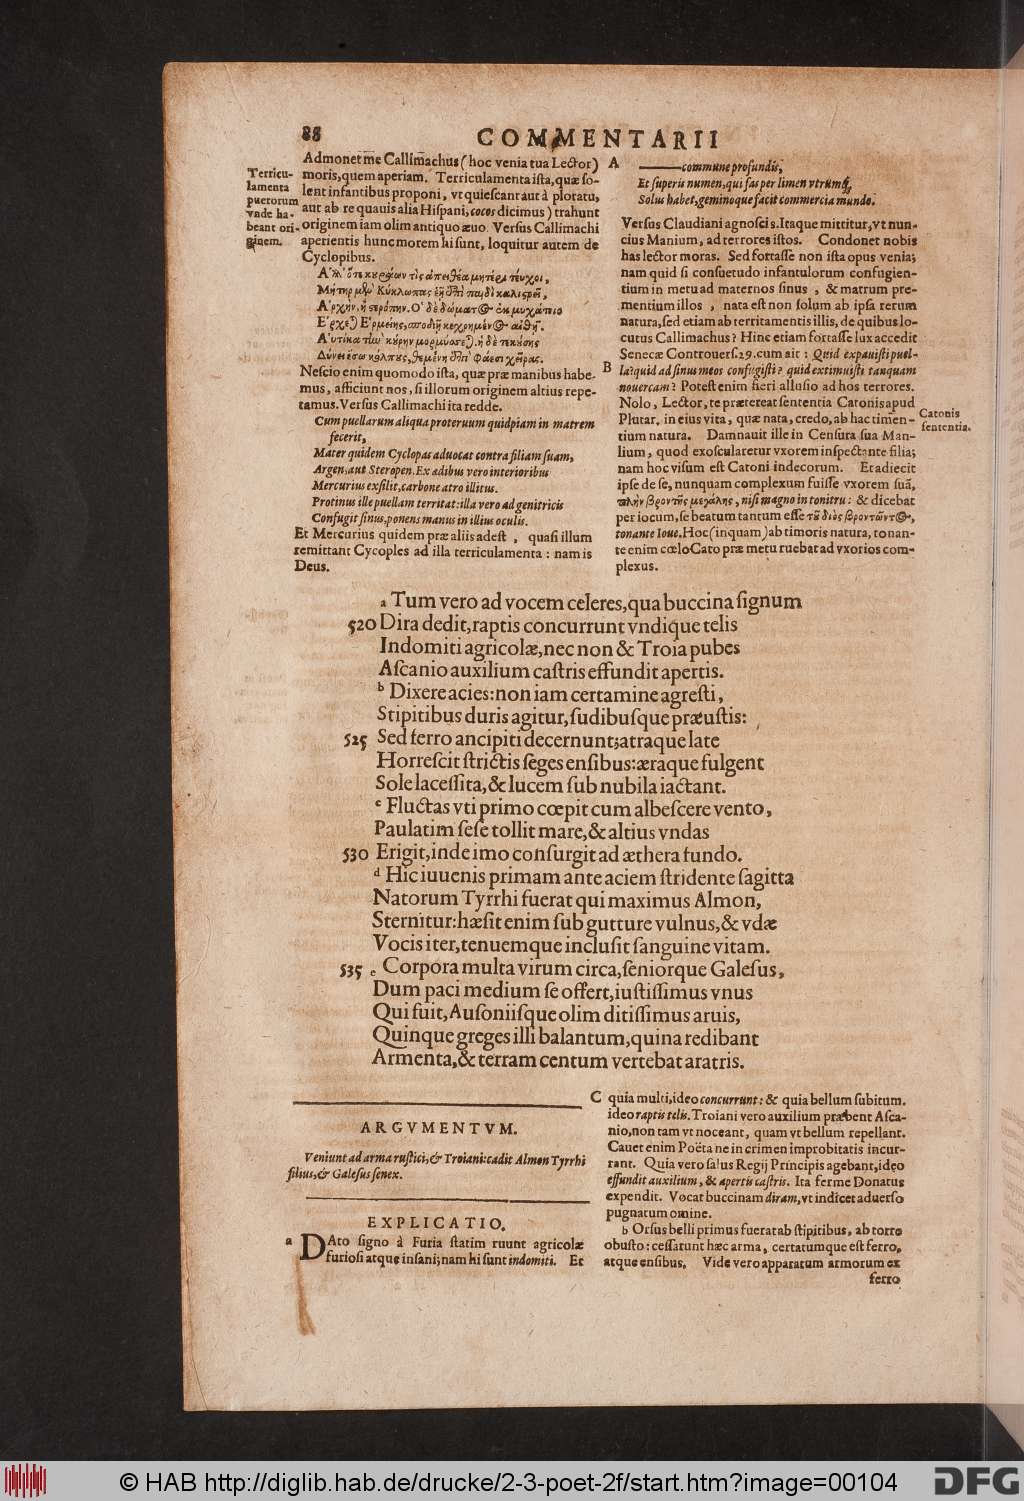 88
COMMENTARII
Terricu-
lamenta
puerorum
vnde ha-
beant ori-
ginem.
Admonet me Callimachus (hoc venia tua Lector)
moris, quem aperiam. Terriculamenta ista, quæ so-
lent infantibus proponi, vt quiescant aut à plotatu,
aut ab re quauis alia Hispani, cocos dicimus) trahunt
originem iam olim antiquo æuo. Versus Callimachi
aperientis hunc morem hi sunt, loquitur autem de
Cyclopibus.
Nescio enim quomodo ista, quæ præ manibus habe-
mus, afficiunt nos, si illorum originem altius repe-
tamus. Versus Callimachi ita redde.
Cum puellarum aliqua proteruum quidpiam in matrem
fecerit,
Mater quidem Cyclopas aduocat contra filiam suam,
Argen, aut Steropen. Ex ædibus vero interioribus
Mercurius exsilit, carbone atro illitus.
Protinus ille puellam territat: illa vero ad genitricis
Confugit sinus, ponens manus in illius oculis.
Et Mercurius quidem præ aliis adest , quasi illum
remittant Cycoples ad illa terriculamenta : nam is
Deus.
A
commune profundis,
Et superis numen, qui fas per limen vtrumq;,
Solus habet, geminoque facit commercia mundo.
Versus Claudiani agnoscis. Itaque mittitur, vt nun-
cius Manium, ad terrores istos. Condonet nobis
has lector moras. Sed fortasse non ista opus venia;
nam quid si consuetudo infantulorum confugien-
tium in metu ad maternos sinus , & matrum pre-
mentium illos , nata est non solum ab ipsa rerum
natura, sed etiam ab territamentis illis, de quibus lo-
cutus Callimachus? Hinc etiam fortasse lux accedit
Senecæ Controuers. 29. cum ait : Quid expauisti puel-
B
la? quid ad sinus meos confugisti? quid extimuisti tanquam
nouercam? Potest enim fieri allusio ad hos terrores.
Nolo, Lector, te prætereat sententia Catonis apud
Plutar. in eius vita, quæ nata, credo, ab hac timen-
Catonis
sententia.
tium natura. Damnauit ille in Censura sua Man-
lium, quod exoscularetur vxorem inspectante filia;
nam hoc visum est Catoni indecorum. Et adiecit
ipse de se, nunquam complexum fuisse vxorem suã,
πλὴν βροντῆς μεγάλης, nisi magno in tonitru: & dicebat
per iocum, se beatum tantum esse τοῦ διὸς βροντῶντος,
tonante Ioue. Hoc (inquam) ab timoris natura, tonan-
te enim cœlo Cato præ metu ruebat ad vxorios com-
plexus.
a Tum vero ad vocem celeres, qua buccina signum
520 Dira dedit, raptis concurrunt vndique telis
Indomiti agricolæ, nec non & Troia pubes
Ascanio auxilium castris effundit apertis.
b Dixere acies: non iam certamine agresti,
Stipitibus duris agitur, sudibusque præustis:
525 Sed ferro ancipiti decernunt; atraque late
Horrescit strictis seges ensibus: æraque fulgent
Sole lacessita, & lucem sub nubila iactant.
c Fluctas vti primo cœpit cum albescere vento,
Paulatim sese tollit mare, & altius vndas
530 Erigit, inde imo consurgit ad æthera fundo.
d Hic iuuenis primam ante aciem stridente sagitta
Natorum Tyrrhi fuerat qui maximus Almon,
Sternitur: hæsit enim sub gutture vulnus, & vdæ
Vocis iter, tenuemque inclusit sanguine vitam.
535 e Corpora multa virum circa, seniorque Galesus,
Dum paci medium se offert, iustissimus vnus
Qui fuit, Ausoniisque olim ditissimus aruis,
Quinque greges illi balantum, quina redibant
Armenta, & terram centum vertebat aratris.
ARGVMENTVM.
Veniunt ad arma rustici, & Troiani: cadit Almon Tyrrhi
filius, & Galesus senex.
EXPLICATIO.
a DAto signo à Furia statim ruunt agricolæ
furiosi atque insani; nam hi sunt indomiti. Et
C quia multi, ideo concurrunt: & quia bellum subitum.
ideo raptis telis. Troiani vero auxilium præbent Asca-
nio, non tam vt noceant, quam vt bellum repellant.
Cauet enim Poëta ne in crimen improbitatis incur-
rant. Quia vero salus Regij Principis agebant, ideo
effundit auxilium, & apertis castris. Ita ferme Donatus
expendit. Vocat buccinam diram, vt indicet aduerso
pugnatum omine.
b Orsus belli primus fuerat ab stipitibus, ab torre
obusto: cessarunt hæc arma, certatumque est ferro,
atque ensibus. Vide vero apparatum armorum ex
ferro
© HAB http://diglib.hab.de/drucke/2-3-poet-2f/start.htm?image=00104
DFG